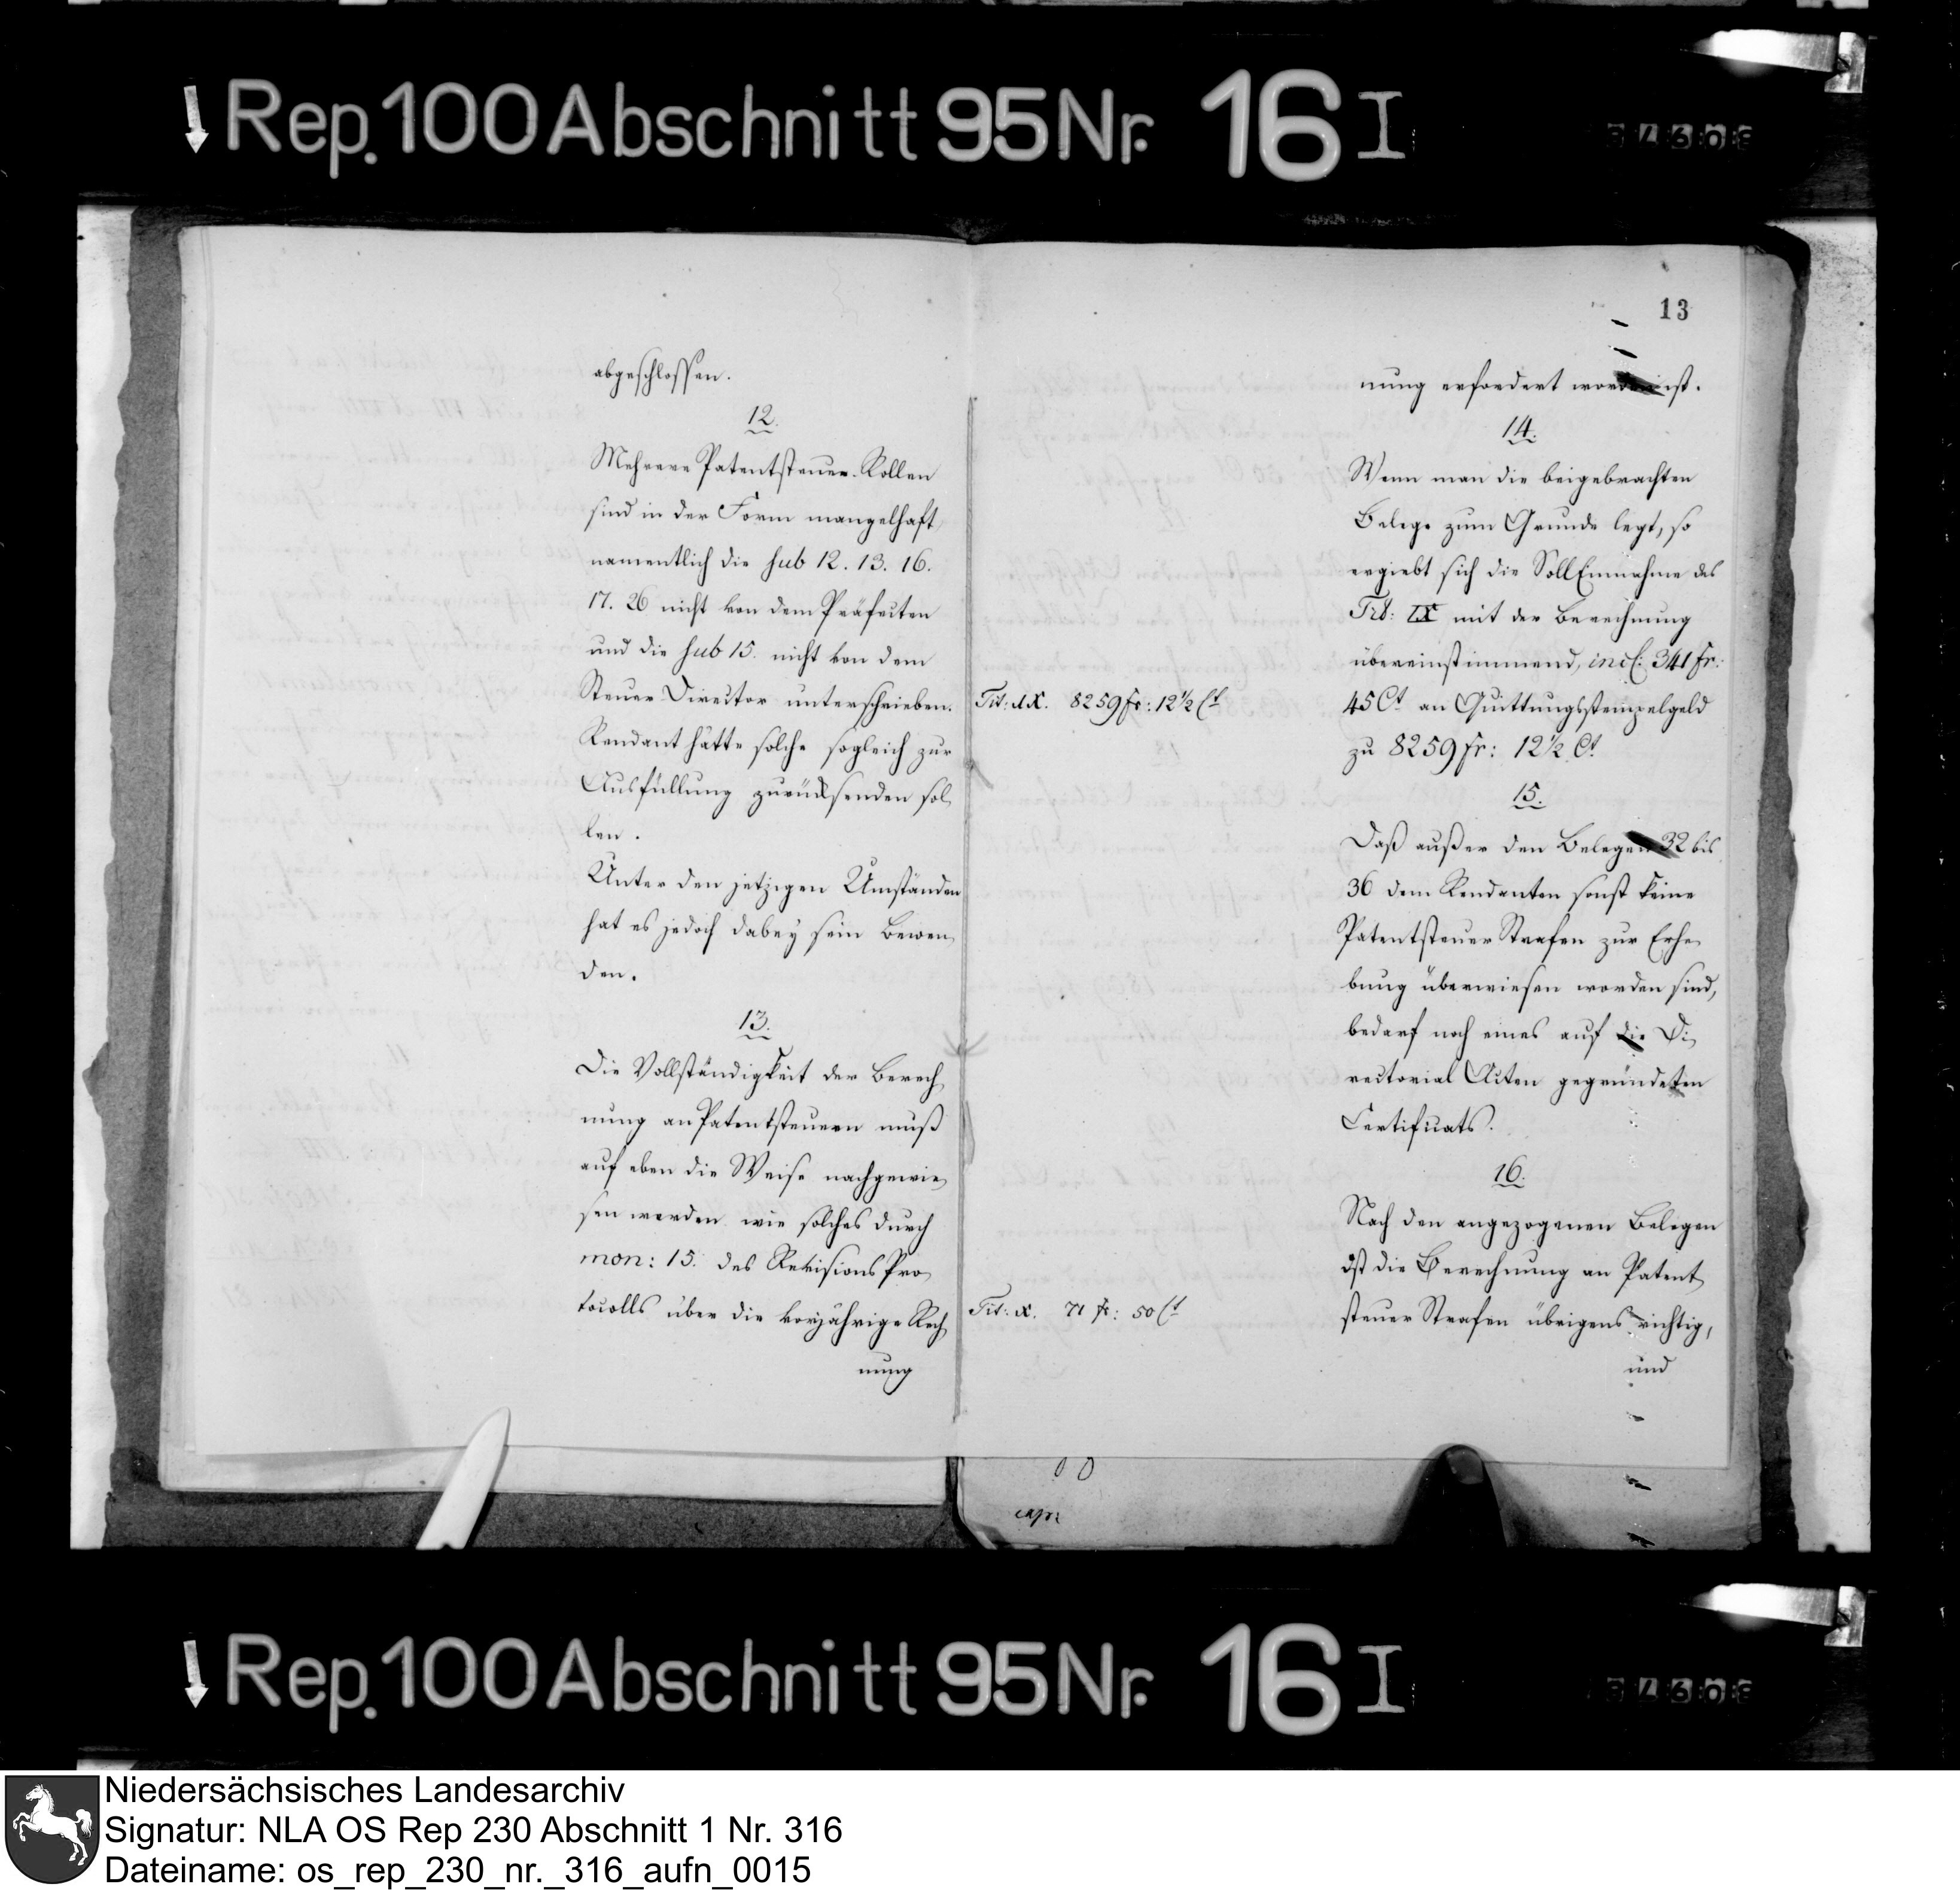 Rep. 100 Abschnitt 95 Nr. 16 I
abgeschlossen.
12.
Mehrere Patentsteuer-Rollen
sind in der Form mangelhaft,
namentlich die sub 12. 13. 16.
17. 26 nicht von dem Präfecten
und die sub 15. nicht von dem
Steuer Director unterschrieben.
Rendant hätte solche sogleich zur
Ausfüllung zurücksenden sol,
len.
Unter den jetzigen Umständen
hat es jedoch dabey sein Bewen,
den.
13.
Die Vollständigkeit der Berech,
nung an Patentsteuern muß
auf eben die Weise nachgewie,
sen werden wie solches durch
mon: 15. des Revisions Pro,
tocolls über die vorjährige Rech,
nung
13
nung erfordert worden ist.
14.
Wenn man die beigebrachten
Belege zum Grunde legt, so
ergiebt sich die Soll Einnahme des
Tit: IX mit der Berechnung
übereinstimmend, incl: 341 fr:
Tit: IX. 8259 fr: 12½ Ct
45 Ct an Quittungsstempelgeld
zu 8259 fr: 12½ Ct
15.
Daß außer den Belegen 32 bis
36 dem Rendanten sonst keine
Patentsteuer Strafen zur Erhe,
bung überwiesen worden sind,
bedarf noch eines auf die Di,
rectorial Acten gegründeten
Certificats.
16.
Nach den angezogenen Belegen
ist die Berechnung an Patent,
Tit: X. 71 fr: 50 Ct
steuer Strafen übrigens richtig,
und
Rep. 100 Abschnitt 95 Nr. 16 I
Niedersächsisches Landesarchiv
Signatur: NLA OS Rep 230 Abschnitt 1 Nr. 316
Dateiname: os_rep_230_nr._316_aufn_0015